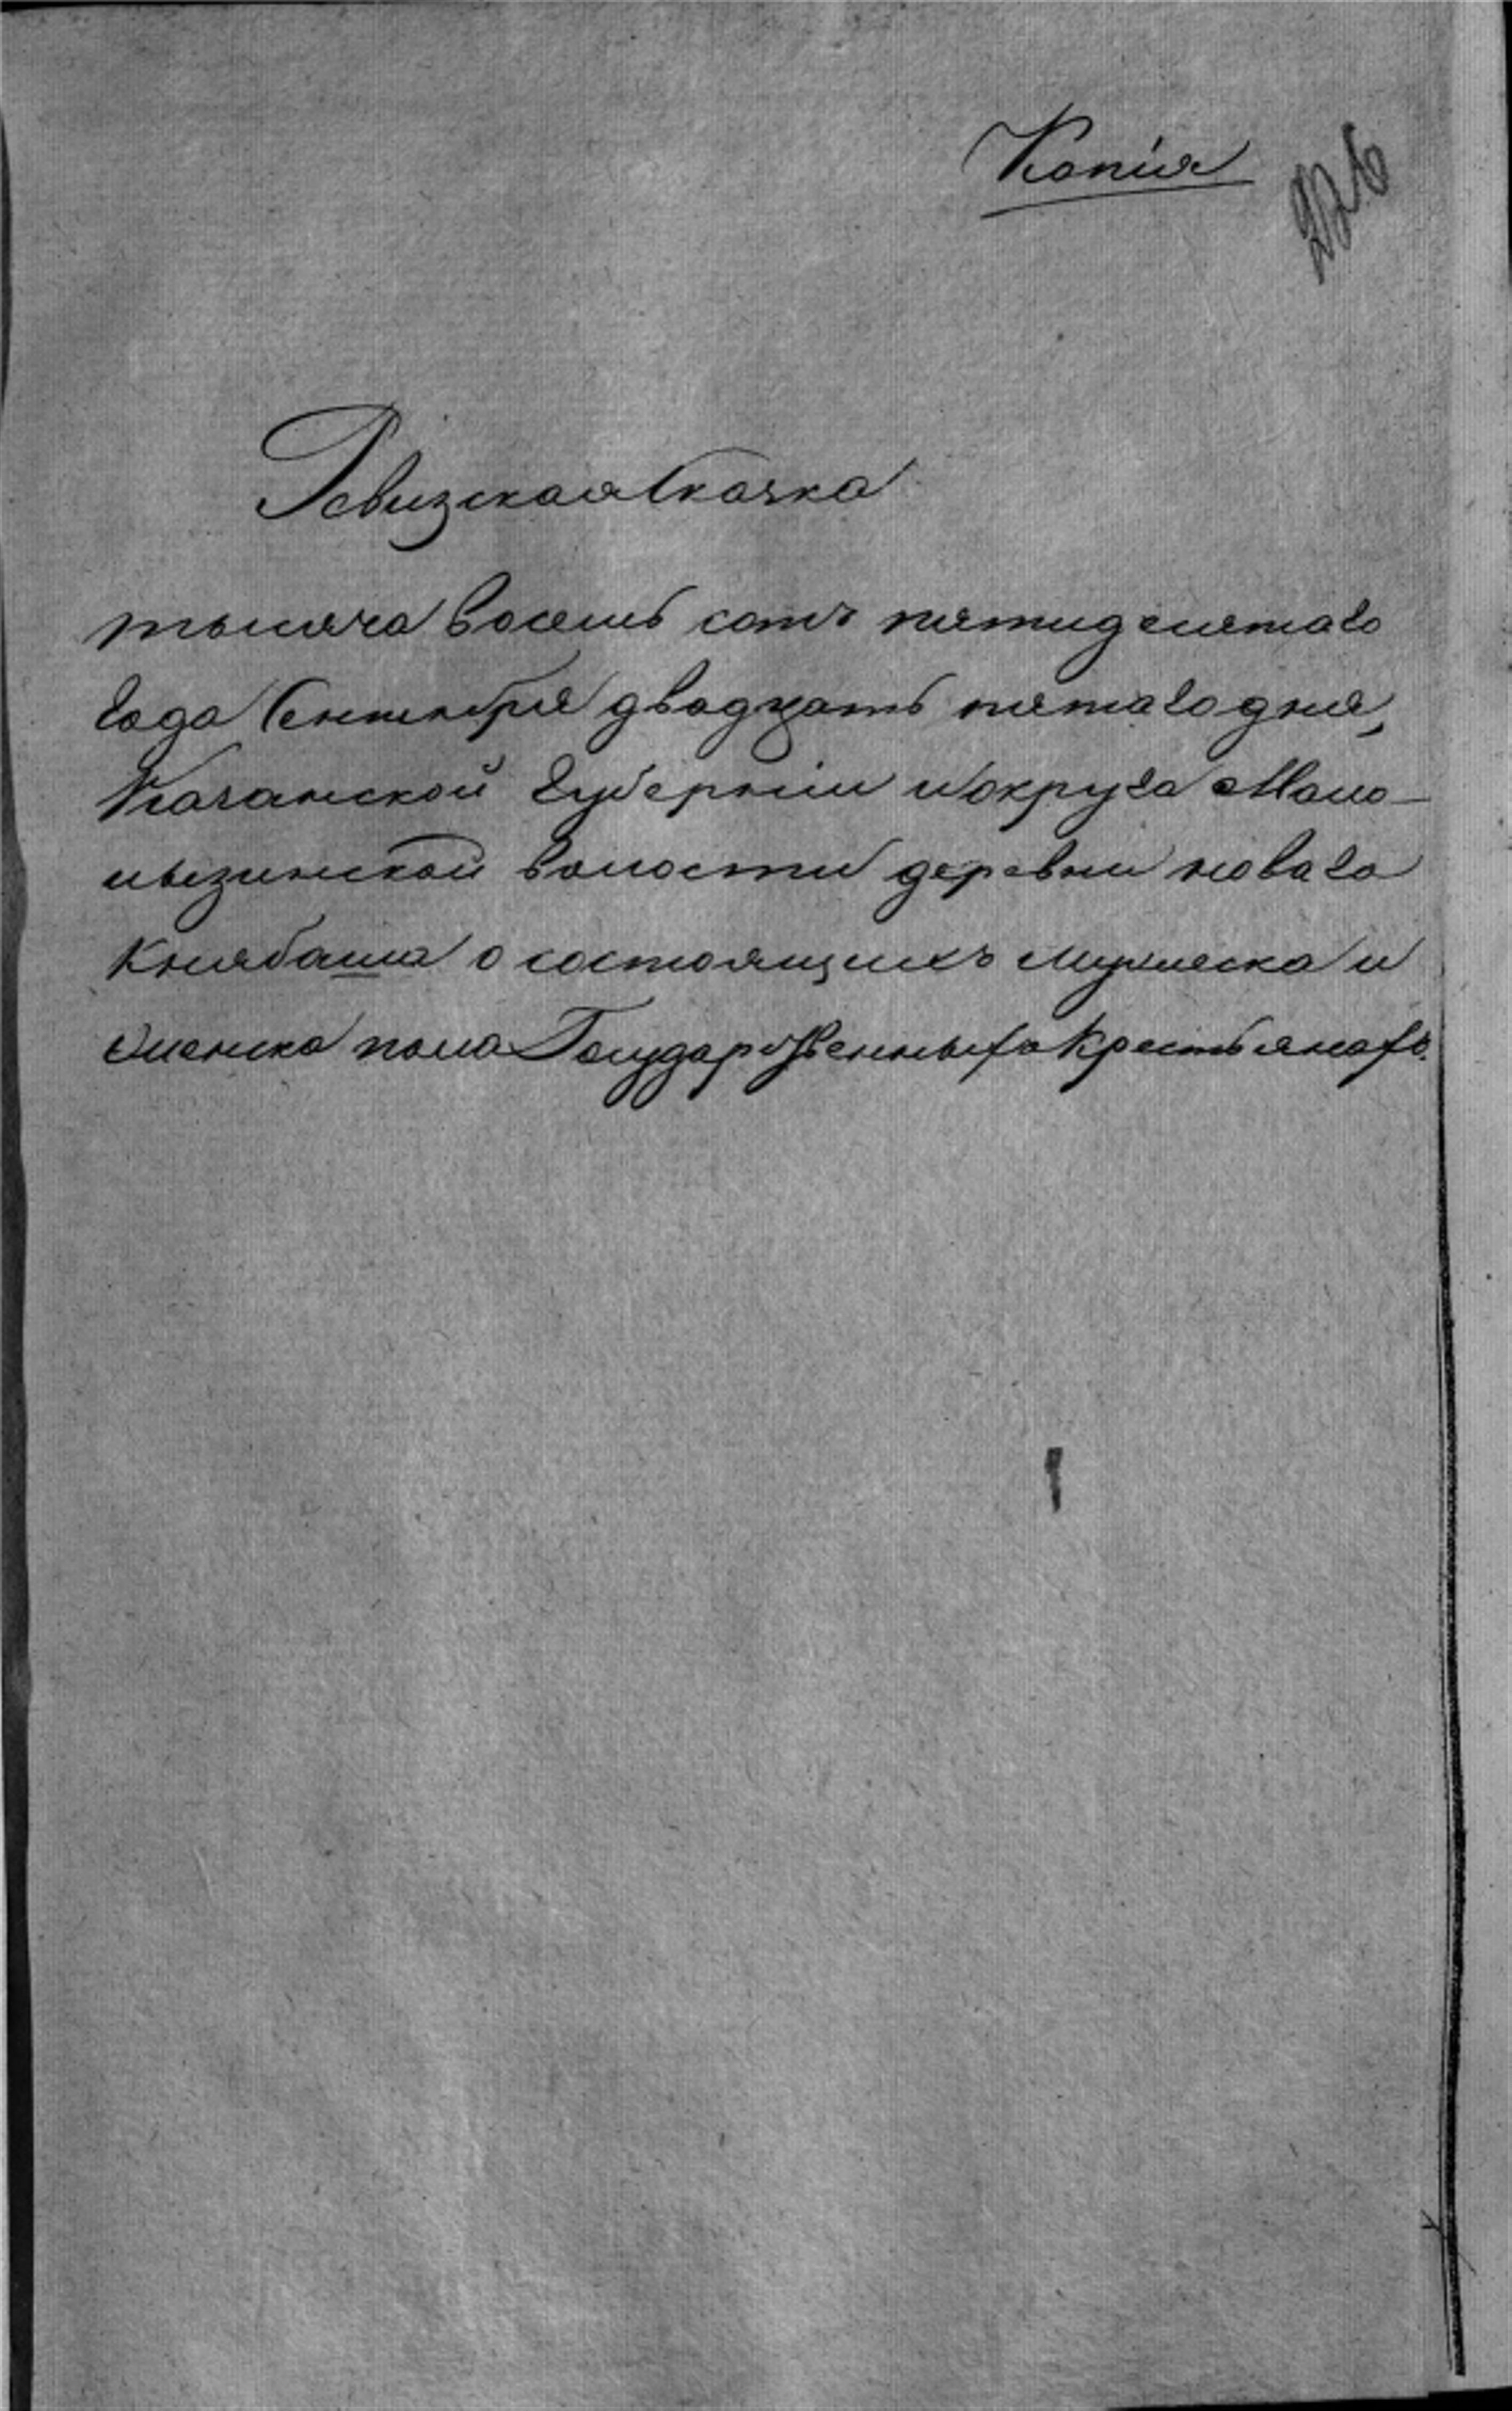 Копія
226
Ревизская Сказка
тысяча восемь сотъ пятидесятаго
года Сентября двадцать пятаго дня,
Казанской Губерніи и округа Мамо-
лызинской волости деревни новаго
Княбаша о состоящихъ мужеска и
женска пола Государственныхъ Крестьянахъ.